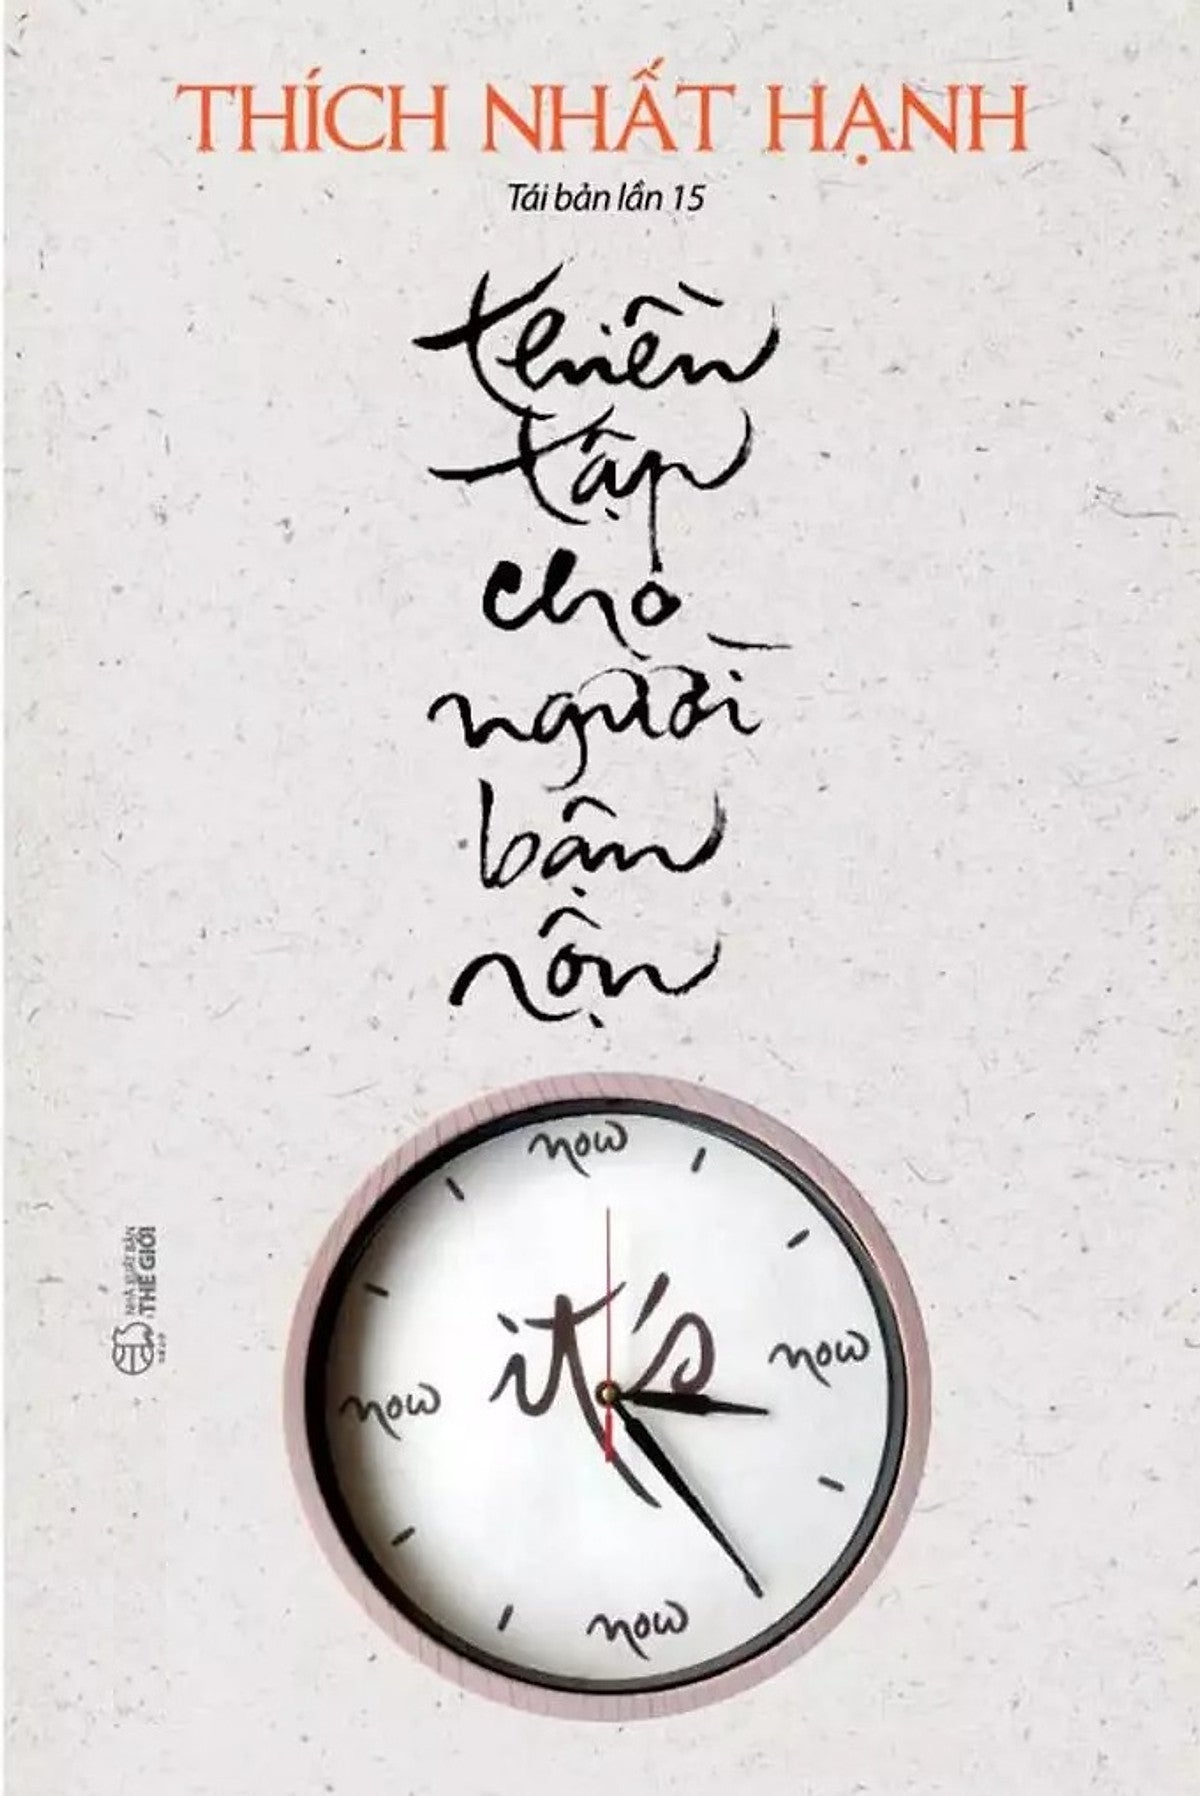 THÍCH NHẤT HẠNH
Tái bản lần 15
thiền
tập
cho
người
bận
rộn
now
it's
now
now
now
NHÀ XUẤT BẢN
THẾ GIỚI